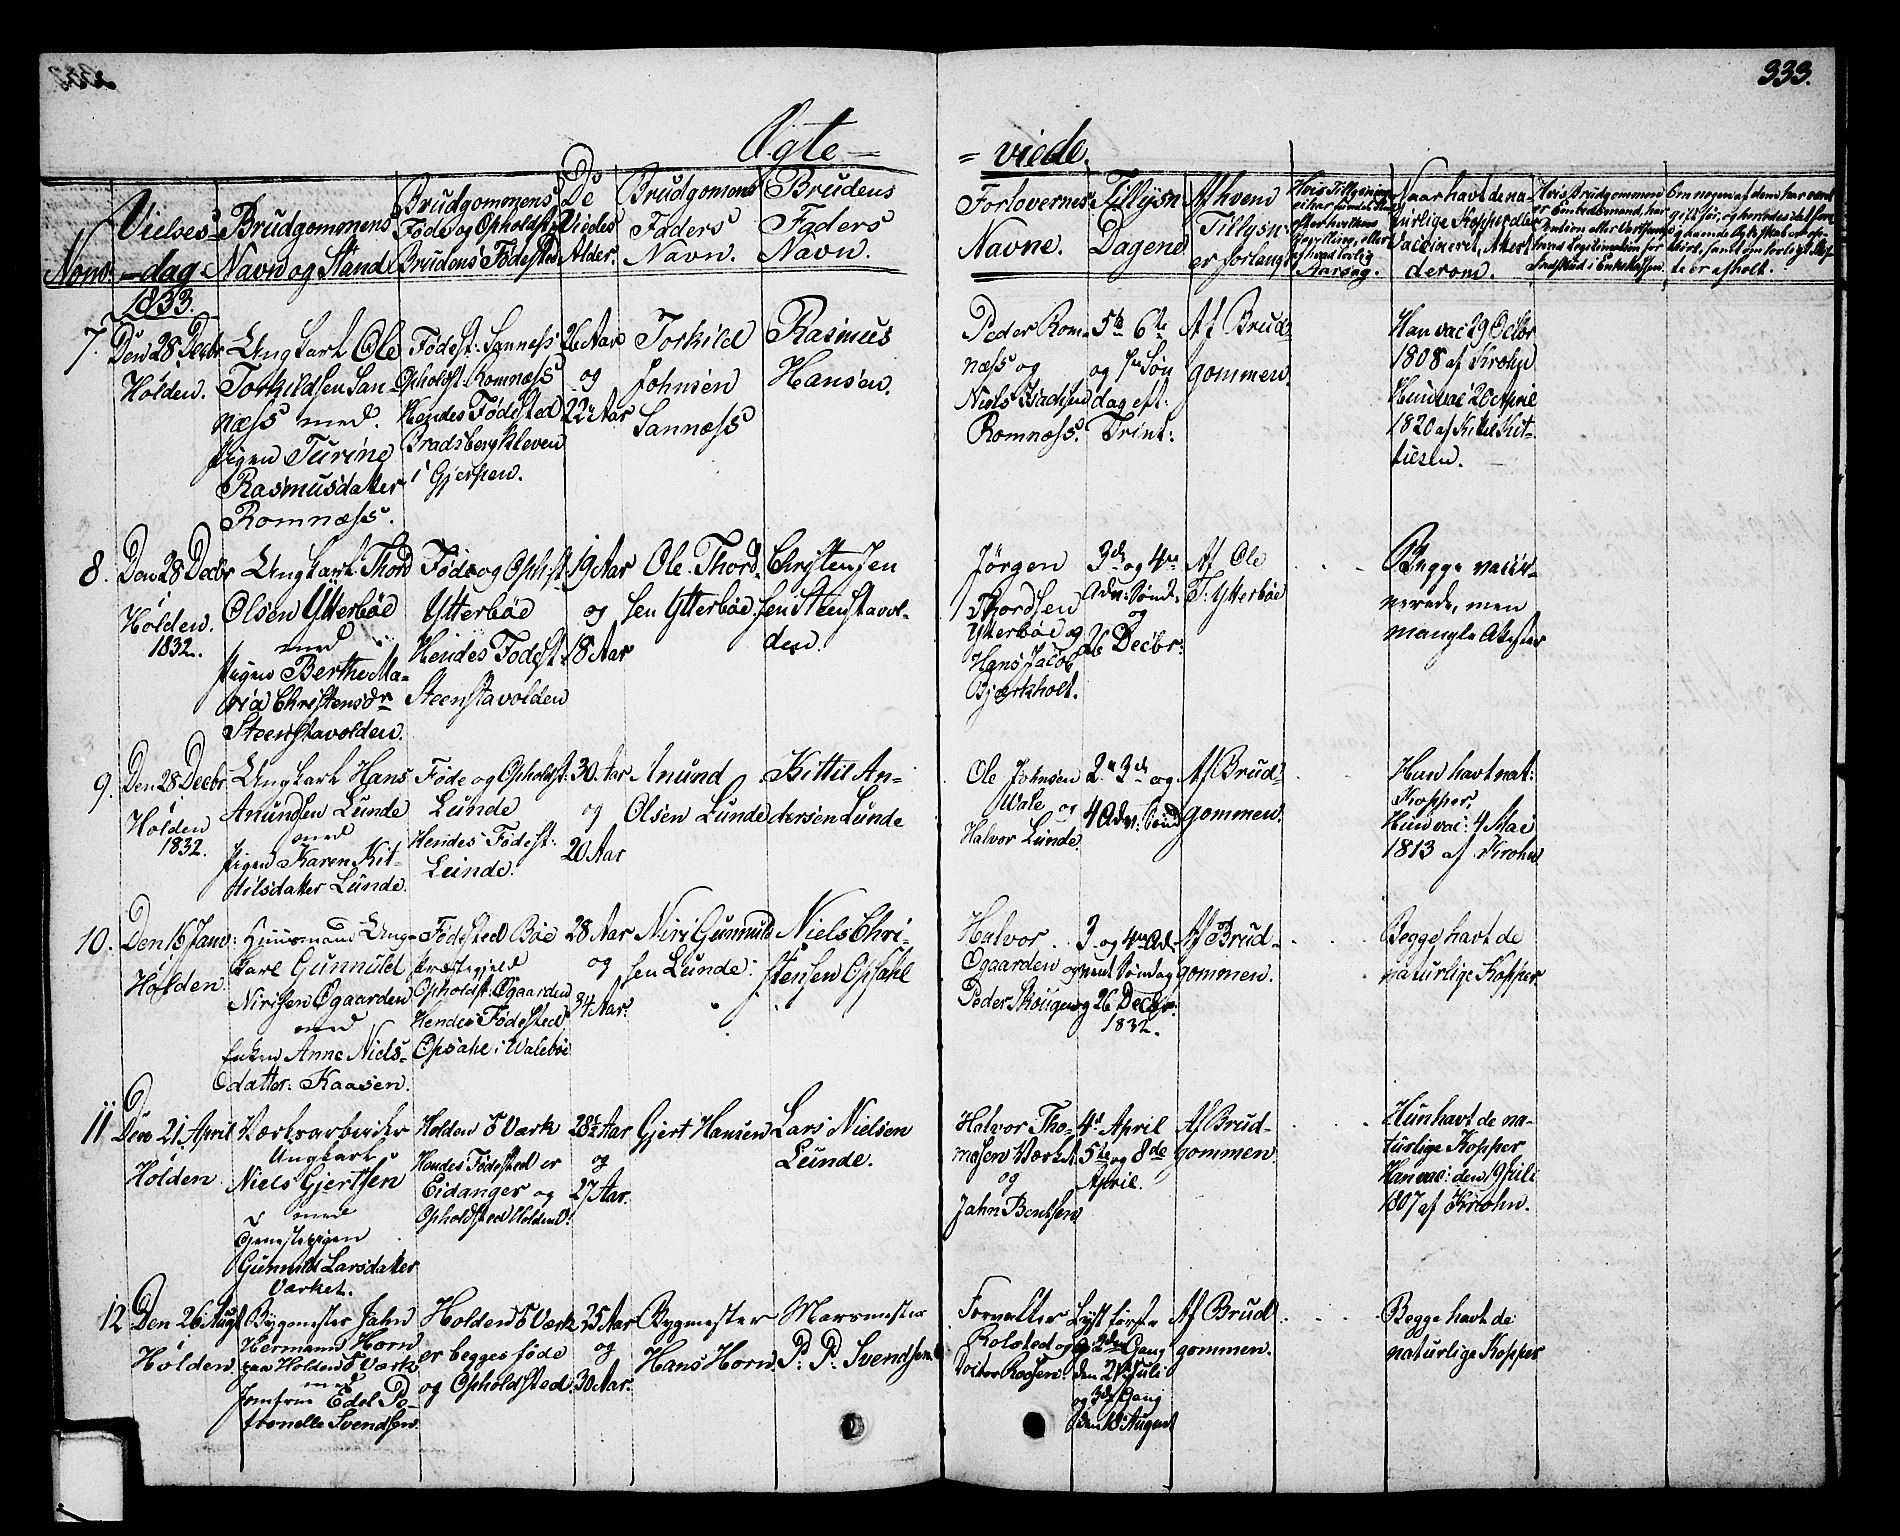 333.
Ægte-
= viede.
Nom.
Vielses-
-dag
Brudgommens
Navn og Stand
Brudgommens
Føde og Opholdst.
Brudens Fødested
De
Viedes
Alder.
Brudgomens
Faders
Navn.
Brudens
Faders
Navn.
Forlovernes
Navne.
Tillysn
Dagene
Af hvem
Tillysn:
er forlangt
Aarsag.
Naar havt de na-
turlige Kopper eller
Vaccineret, Attest
derom.
1833.
7.
Den 28 Decbr
Holden.
Ungkarl Ole
Torkildsen San-
næss med
Pigen Turine
Rasmusdatter
Romnæss.
Fødest: Sannæss
Opholdst: Romnæss
Hendes Fødested
Bradsbergkleven
i Gjerpen.
26 Aar
og
22 Aar
Torkild
Johnsen
Sannæss
Rasmus
Hansen.
Peder Rom-
næss og
Niels Isachsen
Romnæss.
5te 6te
og 7de Søn
dag eft:
Trint:
Af Brud-
gommen.
Han vac 29 Octbr
1808 af Krohn
Hun vac 26 April
1820 af Kitil Kit-
tilsen.
8.
Den 28 Decbr
Holden.
1832.
Ungkarl Thord
Olsen Ytterbøe
med
Pigen Berthe Ma-
ria Christensdr
Steenstavolden.
Føde og Ophst
Ytterbøe
Hendes Fødest:
Steenstavolden
19 Aar
og
18 Aar
Ole Thord-
sen Ytterbøe.
Christen Jen
sen Steenstavol-
den.
Jørgen
Thordsen
Ytterbøe og
Hans Jacob
Bjerkholt.
3de og 4de
Adv: Sønd:
og
26 Decbr:
Af Ole
T: Ytterbøe
Begge vacci-
nerede, men
mangle Attester
9.
Den 28 Decbr
Holden
1832.
Ungkarl Hans
Anundsen Lunde
med
Pigen Karen Kit-
tilsdatter Lunde.
Føde og Opholdst:
Lunde
Hendes Fødest:
Lunde.
30 Aar
og
20 Aar
Anund
Olsen Lunde
Kittil An-
dersen Lunde
Ole Johnsen
Wale og
Halvor Lunde.
2n 3de og
4 Adv: Sønd
Af Brud-
gommen.
Hun havt nat:
Kopper,
Hun vac: 4 Mai
1813 af Krohn
10.
Den 15 Janv:
Holden
Huusmand Ung-
karl Gunnuld
Nirisen Øgaarden
med
Enken Anne Niels-
datter: Kaasen.
Fødested Bøe
Præstegjeld
Opholdst: Øgaarden
Hendes Fødested
Opsahl i Walebøe
28 Aar
og
34 Aar.
Niri Gunnuld
sen Lunde.
Niels Chri-
stensen Opsahl
Halvor
Øgaarden og
Peder Skougen
3 og 4de Ad-
vent Søndag
og 26 Decbr.
1832.
Af Brud-
gommen.
Begge havt de
naturlige Kopper.
11
Den 21 April
Holden
Værksarbeider
Ungkarl
Niels Gjertsen
med
Tjenestepigen
Gunnild Larsdatter
Værket.
Holden J Værk
Hendes Fødested er
Eidanger og
Opholdsted Holden
28½ Aar
og
27 Aar.
Gjert Hansen
Lars Nielsen
Lunde.
Halvor Tho-
masen Værket
og
Jahn Bentsen
4d April
5te og 8de
April.
Af Brud-
gommen.
Hun havt de na-
turlige Kopper
Han vac: den 19 Juli
1807 af Krohn.
12
Den 26 Augst
Holden
Bygmester Jahn
Hermann Horn
paa Holden J Værk
med
Jomfrue Edel Pe-
tronelle Svendsen
Holden J Værk
er begges føde
og Opholdsted
35 Aar
og
30 Aar.
Bygmester
Hans Horn
Marsmester
P: P: Svendsen.
Forvalter
Rolsted og
Roosen
Lyst første
og 2den Gang
den 21 Juli
og 3de Gang
den 18 August
Af Brud-
gommen.
Begge havt de
naturlige Kopper